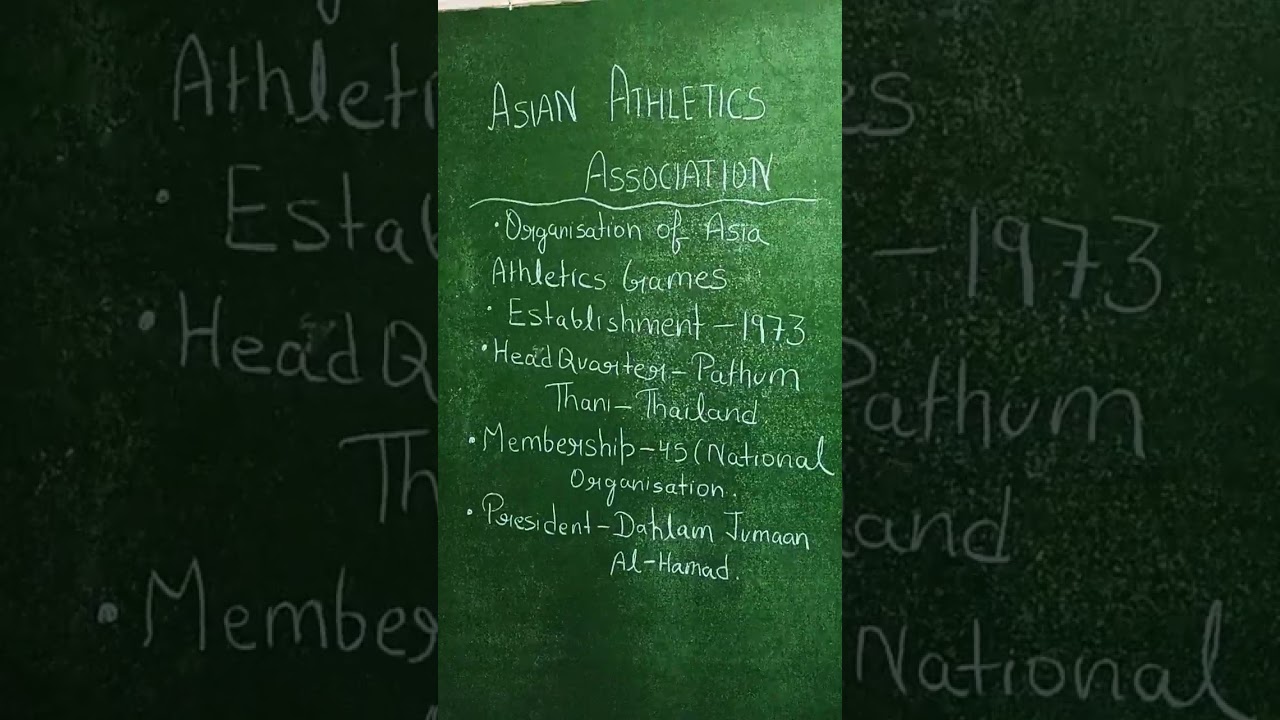 ASIAN ATHLETICS
ASSOCIATION
• Organisation of Asia
Athletics Games
• Establishment - 1973
• HeadQuarter - Pathum
Thani - Thailand
• Membership - 45 (National
Organisation.
• President - Dahlam Jumaan
Al-Hamad.